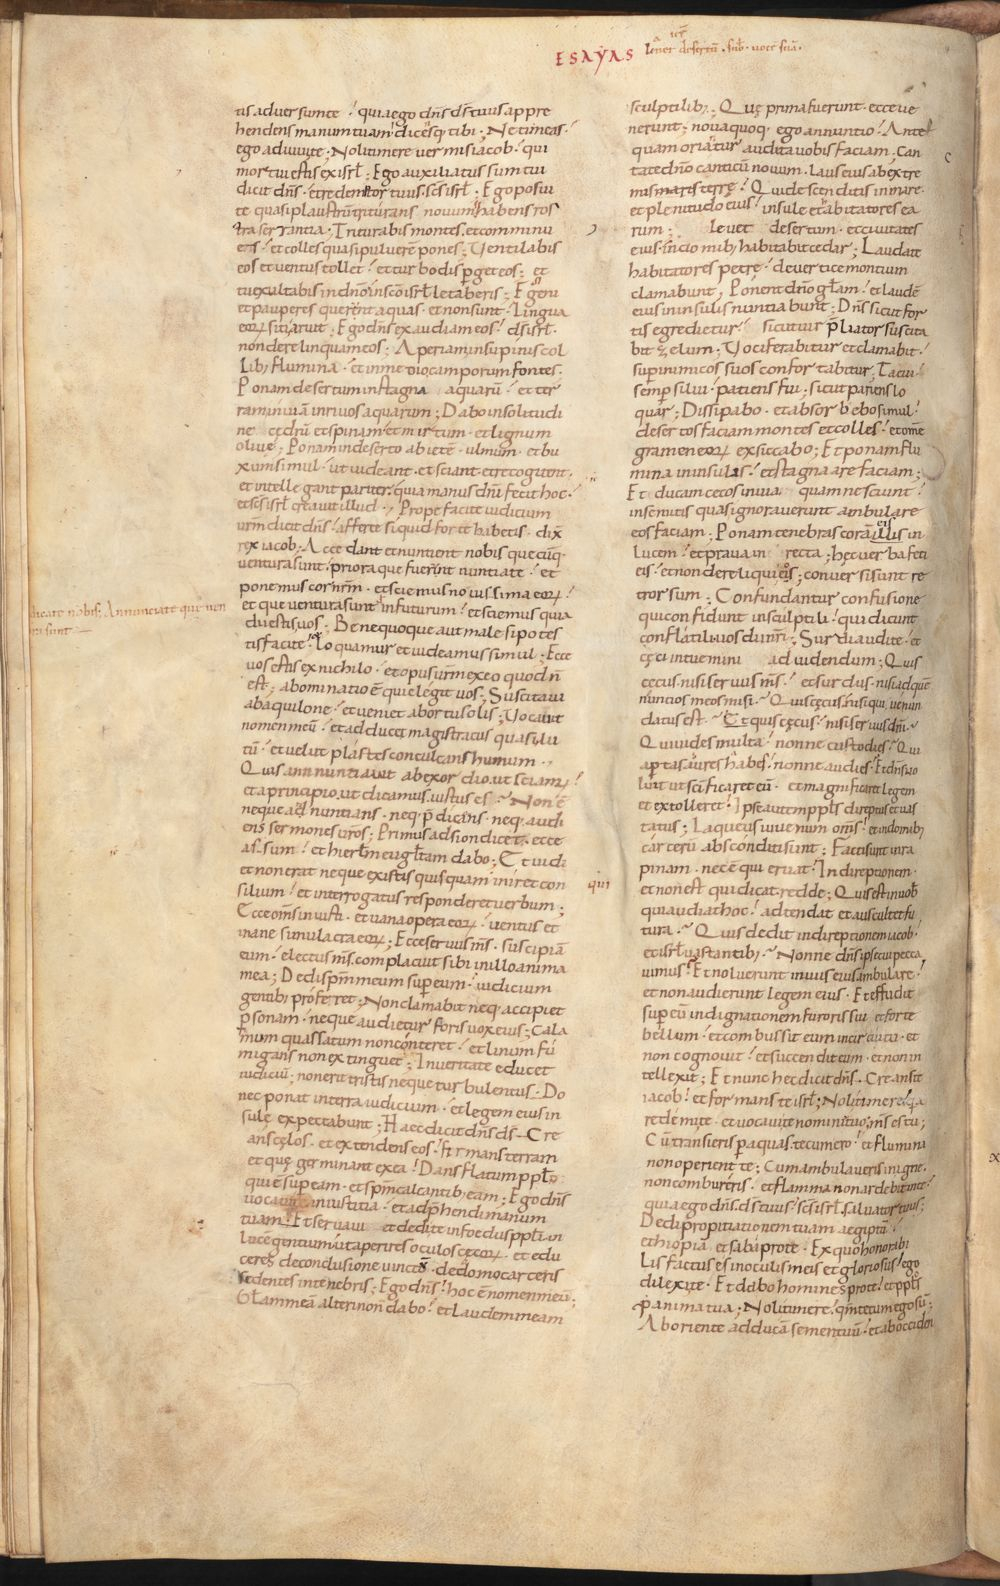 ESAYAS
lenet desertū. sub voce suā.
tis adversum te quia ego dn̄s ds̄ tuus appre
hendens manum tuam dicensq; tibi; Ne timeas.
ego adiuui te; Noli timere uermis iacob. qui
mortui estis ex isrl̄; Ego auxiliatus sum tui
dicit dn̄s. et redemptor tuus. scs̄ isrl̄; Ego posui
te quasi plaustrū triturans nouum habens ros
tra serrantia. Triturabis montes. et comminu
es. et colles quasi puluerē pones; Uentilabis
eos et uentus tollet et turbo disp̄get eos; et
tu exultabis in dn̄o in sc̄o isrl̄ letaberis; Egeni
et pauperes querent aquas. et non sunt. Lingua
eoꝝ siti aruit; Ego dn̄s exaudiam eos ds̄ isrl̄.
non derelinquam eos; Aperiam in supinis col
libꝫ flumina. et in medio camporum fontes.
Ponam desertum in stagna aquarū. et ter
ram inuiā in riuos aquarum; Dabo in solitudi
ne cedrū et spinam et mirtum. et lignum
oliuę; Ponam in deserto abietē. ulmum. et bu
xum simul. ut uideant. et sciant. et recogitent.
et intellegant pariter. quia manus dn̄i fecit hoc.
et scs̄ isrl̄ creauit illud. Prope facite iudicium
urm̄ dicit dn̄s. afferte si quid forte habetis. dix̄
rex iacob; Accedant et nuntient nobis quecūq;
uentura sunt. priora que fuerint nuntiate. et
ponemus cor nr̄m. et sciemus nouissima eoꝝ
dicate nobis; Annunciate que ven
tura sunt
et que uentura sunt in futurum et sciemus quia
dii estis uos; Bene quoque aut male si potes
tis facite. loquamur et uideamus simul; Ecce
uos estis ex nichilo. et opus urm̄ ex eo quod n̄
est; abominatio ē qui elegit uos; Suscitaui
ab aquilone. et ueniet ab ortu solis; Uocauit
nomen meū. et adducet magistratus quasi lu
tū. et uelut plastes conculcans humum.
Quis annuntiauit ab exordio. ut sciamꝰ
et a principio. ut dicamus. iustus es; Non ē
neque adnuntians. neq; p̄dicens. neq; audi
ens sermones uros; Primus ad sion dicet. ecce
assum. et hierlm̄ euglistam dabo; Et uidi
et non erat neque ex istis quisquam iniret con
silium. et interrogatus responderet uerbum;
Ecce oms̄ iniusti. et uana opera eoꝝ. uentus et
inane simulacra eoꝝ; Ecce seruus ms̄. suscipiā
eum. electus ms̄. complacuit sibi in illo anima
mea; Dedi spm̄ meum sup eum. iudicium
gentibꝫ proferet; Non clamabit neq; accipiet
psonam. neque audietur foris uox eius; Cala
mum quassatum non conteret. et linum fu
migans non extinguet; In ueritate educet
iudiciū. non erit tristis neque turbulentus. Do
nec ponat in terra iudicium. et legem eius in
sulę expectabunt; Haec dicit dn̄s ds̄. Cre
ans cęlos. et extendens eos. firmans terram
et quę germinant ex ea. Dans flatum pplo
qui ē sup eam. et spm̄ calcantibꝫ eam; Ego dn̄s
uocaui te in iustitia. et adphendi manum
tuam; Et seruaui et dedi te in foedus ppli. in
lucē gentium. ut aperires oculos cęcoꝝ. et edu
ceres de conclusione uinctos. de domo carceris
sedentes in tenebris; Ego dn̄s hoc ē nomen meū;
Glam̄ meā alteri non dabo. et laudem meam
sculptilibꝫ; Quę prima fuerunt. ecce ue
nerunt; noua quoq; ego annuntio. Ante
quam oriantur audita uobis faciam. Can
tate dn̄o canticū nouum. laus eius ab extre
mis maris terrę. Qui descenditis in mare.
et plenitudo eius. insule et habitatores ea
rum; leuet desertum. et ciuitates
eius. in domibꝫ habitabit cedar; Laudate
habitatores petre. de uertice montium
clamabunt; Ponent dn̄o glam̄. et laudē
eius in insulis nuntiabunt; Dn̄s sicut for
tis egredietur. sicut uir p̄liator suscita
bit zelum; Uociferabitur et clamabit.
sup inimicos suos confortabitur; Tacui
semp silui. patiens fui; sicut pariens lo
quar; Dissipabo. et absorbebo simul.
desertos faciam montes et colles. et om̄e
gramen eoꝝ exsiccabo; Et ponam flu
mina in insulas. et stagna arefaciam;
Et ducam cecos in uia quam nesciunt.
in semitis quas ignorauerunt ambulare
eos faciam; Ponam tenebras corā illis in
eis
lucem. et praua in recta; hęc uerba feci
eis. et non dereliqui eos; conuersi sunt re
trorsum; Confundantur confusione
qui confidunt in sculptili. qui dicunt
conflatili. uos dii nr̄i; Surdi audite. et
cęci intuemini ad uidendum; Quis
cecus. nisi seruus ms̄. et surdus. nisi ad quē
nuncios meos misi. Quis cęcus. nisi qui uenun
datus est. Et quis cęcus. nisi seruus dn̄i.
Qui uides multa. nonne custodies. Qui
apertas aures habes. nonne audies. Et dn̄s uo
luit ut scificaret eū. et magnificaret legem
et extolleret. Ipse autem ppls direptus et uas
tatus; Laqueus iuuenum oms̄. et in domibꝫ
carcerū absconditi sunt; Facti sunt in ra
pinam. nec ē qui eruat. In direptionem.
et non est qui dicat. redde; Quis est in uob
qui
qui audiat hoc. adtendat et auscultet fu
tura. Quis dedit in direptionem iacob.
et isrl̄ uastantibꝫ. Nonne dn̄s ipse cui pecca
uimus. Et noluerunt in uiis eius ambulare.
et non audierunt legem eius. Et effudit
sup eū indignationem furoris sui et forte
bellum. et combussit eum in circuitu. et
non cognouit. et succendit eum. et non in
tellexit; Et nunc hec dicit dn̄s. Creans te
iacob. et formans te isrl̄; Noli timere quia
redemi te. et uocaui te nomine tuo. ms̄ es tu;
Cū transieris p aquas. tecum ero. et flumina
non operient te; Cum ambulaueris in igne.
non combureris. et flamma non ardebit in te.
quia ego dn̄s. ds̄ tuus. scs̄ isrl̄. saluator tuus;
Dedi propitiationem tuam aegiptū.
ethiopiā et saba pro te. Ex quo honorabi
lis factus es in oculis meis et gloriosus. ego
dilexi te. Et dabo homines pro te. et pplos
p anima tua; Noli timere. qm̄ tecum ego sū;
Ab oriente adducā semen tuū. et ab occiden